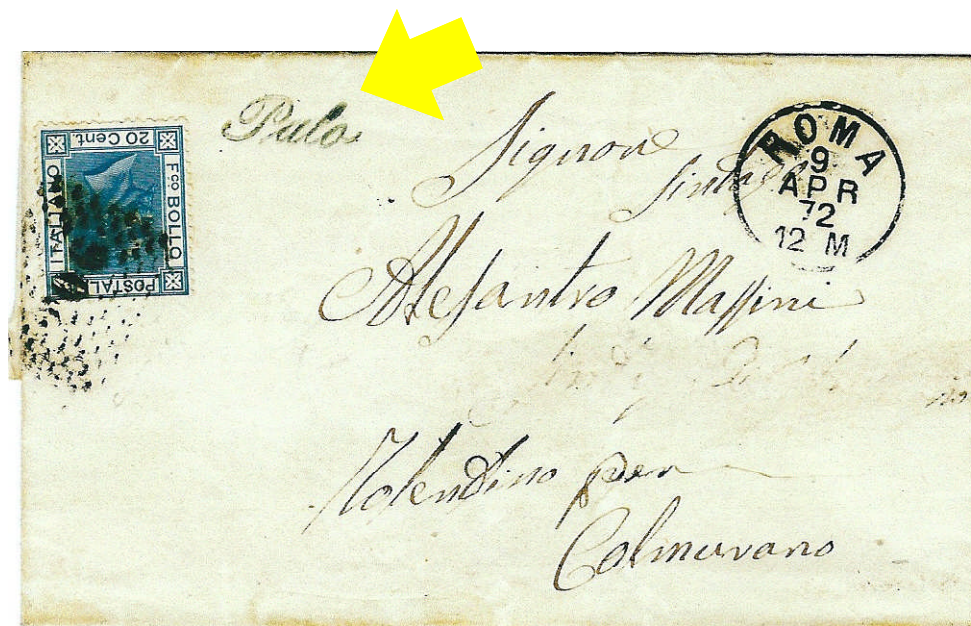 Palo
20 Cent.
F.co BOLLO
POSTALE
ITALIANO
ROMA
9
APR
72
12 M
Signore
Alesantro Massini
Tolendino per
Colmurano